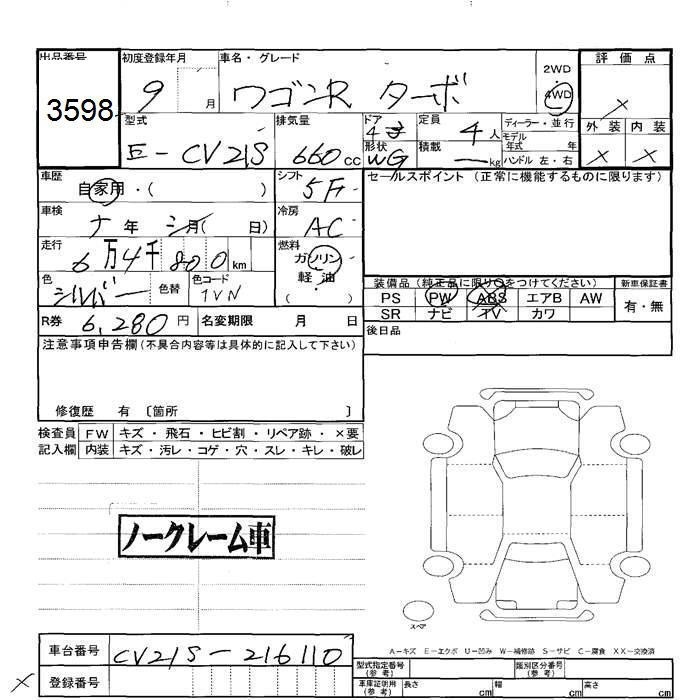 出品番号
3598
初度登録年月
9 月
車名・グレード
ワゴンR ターボ
2WD
4WD
評価点
×
外装 内装
× ×
型式
E-CV21S
排気量
660cc
ドア
4
形状
WG
定員
4人
積載
kg
ディーラー・並行
モデル年式 年
ハンドル 左・右
車歴
自家用・( )
シフト
5F
セールスポイント (正常に機能するものに限ります)
車検
年 月( 日)
冷房
AC
走行
6万4千800km
燃料
ガソリン
軽油
( )
色
シルバー
色替
色コード
1VN
装備品 (純正品に限り○をつけてください)
新車保証書
PS PW ABS エアB AW
SR ナビ TV カワ
有・無
R券 6,280円
名変期限 月 日
後日品
注意事項申告欄 (不具合内容等は具体的に記入して下さい)
修復歴 有 〔箇所 〕
検査員記入欄
FW キズ・飛石・ヒビ割・リペア跡・×要
内装 キズ・汚レ・コゲ・穴・スレ・キレ・破レ
ノークレーム車
スペア
A-キズ E-エクボ U-凹み W-補修跡 S-サビ C-腐食 XX-交換済
車台番号 CV21S-216110
× 登録番号
型式指定番号(参考) 類別区分番号(参考)
車庫証明用(参考) 長さ cm 幅 cm 高さ cm